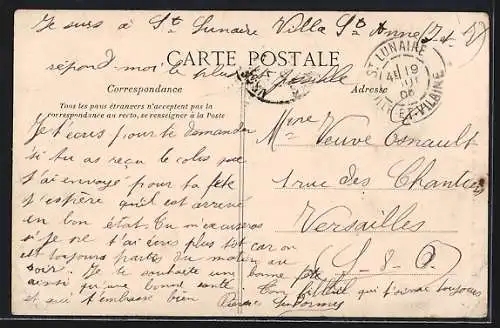 Je suis à St Lunaire Villa Ste Anne I-et-V
CARTE POSTALE
répond moi le plus possible
Correspondance
Adresse
Tous les pays étrangers n'acceptent pas la
correspondance au recto, se renseigner à la Poste
ST LUNAIRE
19
ILLE-ET-VILAINE
Je t'écris pour te demander
si tu as reçu le colis que
j'ai envoyé pour ta fête
j'espère qu'il est arrivé
en bon état. Tu m'excuseras
si je ne t'ai écris plus tôt car on
est toujours partis du matin au
soir. Je te souhaite une bonne fête
ainsi qu'une bonne santé
et qui t'embrasse bien
Mme
Veuve Osnault
1 rue des Chantiers
Versailles
S-&-O
Ton qui t'aime toujours